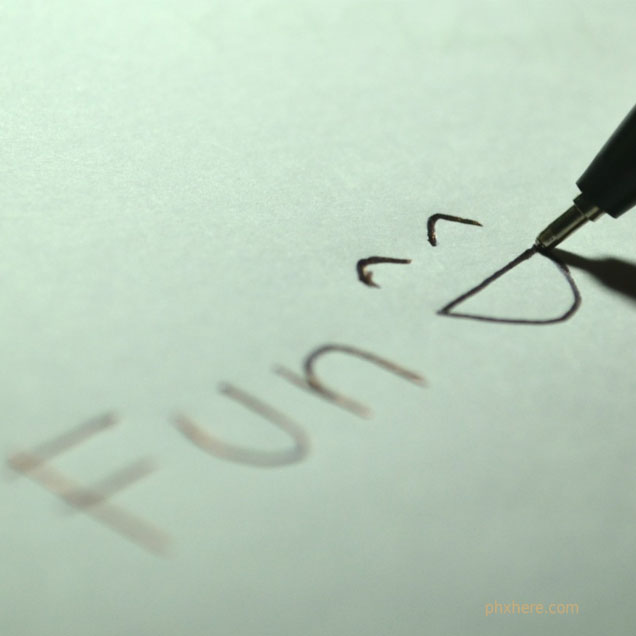 Fun ^^D
phxhere.com